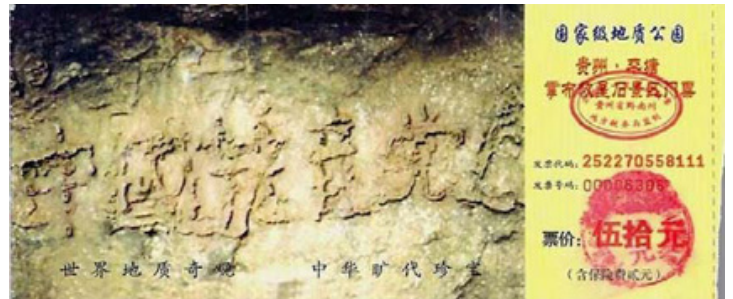 中國共産党
世界地质奇观 中华旷代珍宝
国家级地质公园
贵州·平塘
掌布藏字石景区门票
贵州省黔南州
发票代码: 252270558111
发票号码: 00006396
票价: 伍拾元
(含保险费贰元)